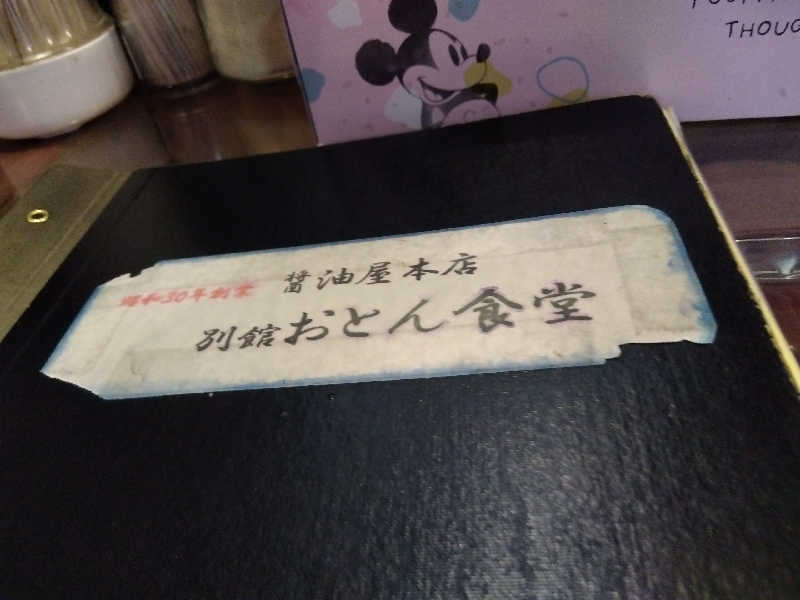 THOUG
昭和30年創業
醤油屋本店
別館おとん食堂